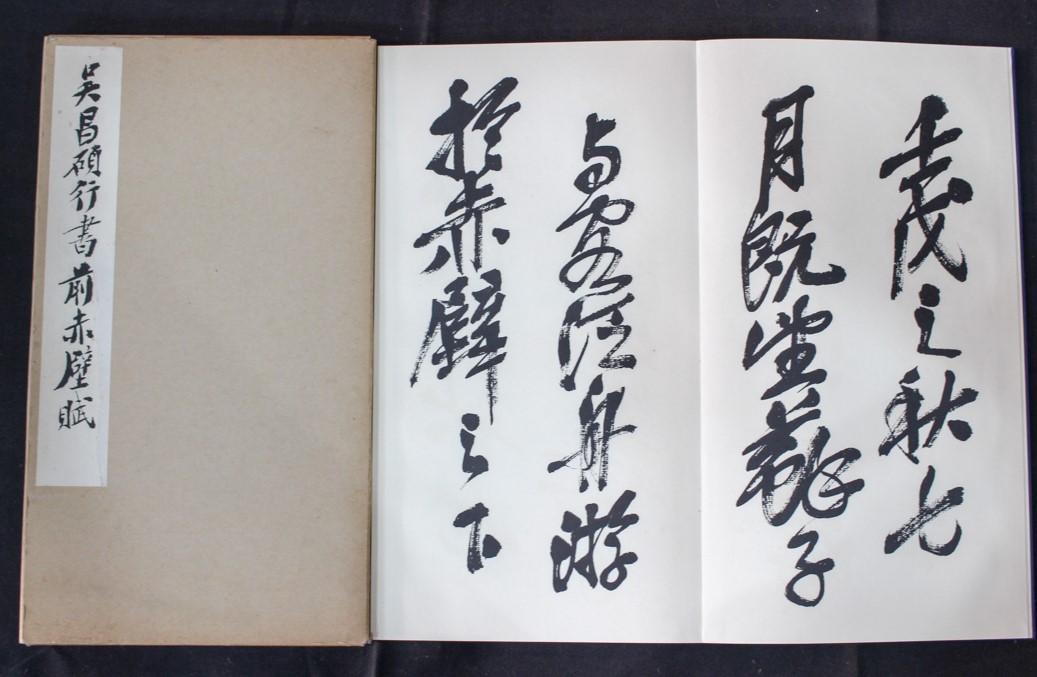 吳昌碩行書前赤壁賦
壬戌之秋七
月既望蘇子
与客泛舟游
於赤壁之下